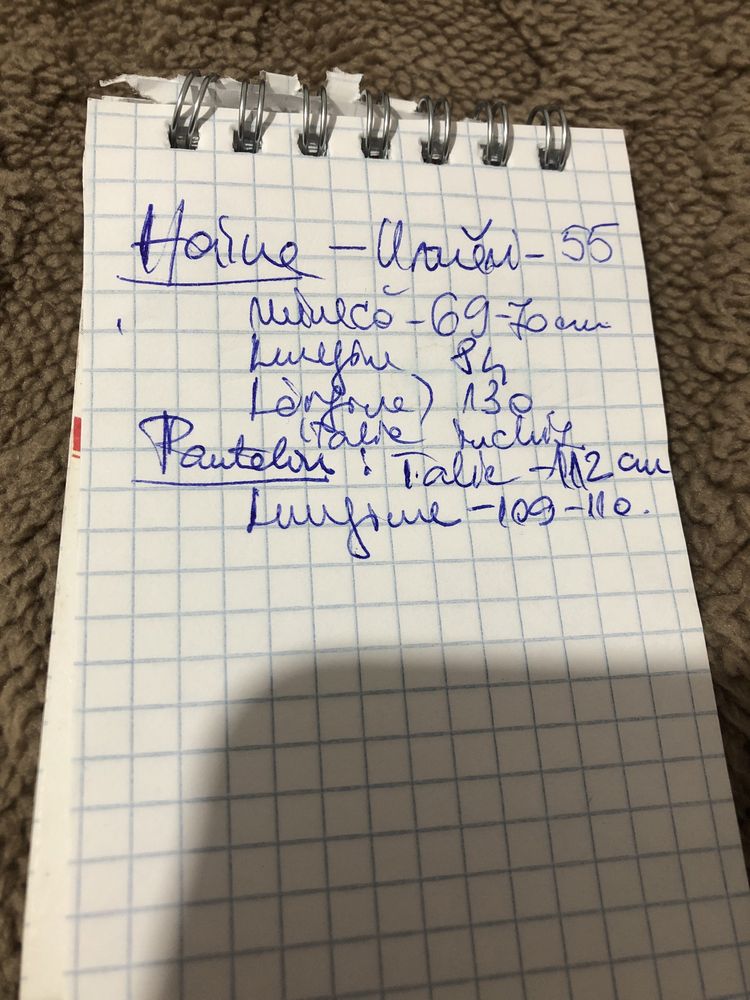 Haină – Umăr – 55
mânecă – 69–70 cm
Lungime 84
Lărgime) 130
(talie inclus
Pantalon : Talie – 112 cm
Lungime – 109–110.